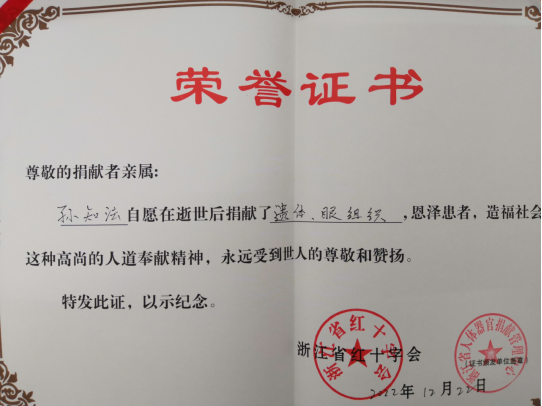 荣誉证书
尊敬的捐献者亲属:
孙知法自愿在逝世后捐献了遗体、眼组织,恩泽患者,造福社会
这种高尚的人道奉献精神,永远受到世人的尊敬和赞扬。
特发此证,以示纪念。
浙江省红十字会
浙江省红十字会
浙江省人体器官捐献管理
(证书颁发单位签章)
2022年12月22日